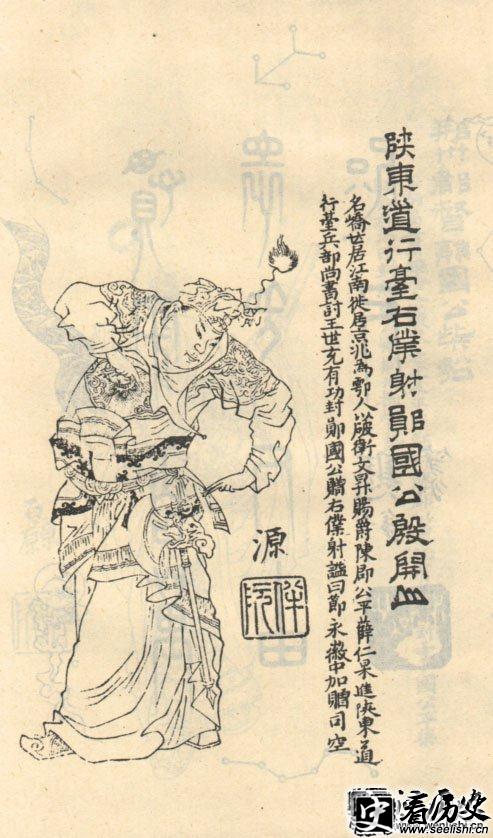 陝東道行臺右僕射鄖國公殷開山
名嶠世居江南徙居京兆為鄠人以破衛文昇賜爵陳郡公平薛仁杲進陝東道
行臺兵部尚書討王世充有功封鄖國公贈右僕射謚曰節永徽中加贈司空
源
看历史
www.seelishi.cn